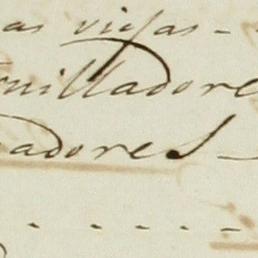 as vigas -
nilladore
adores -
- - - - - -